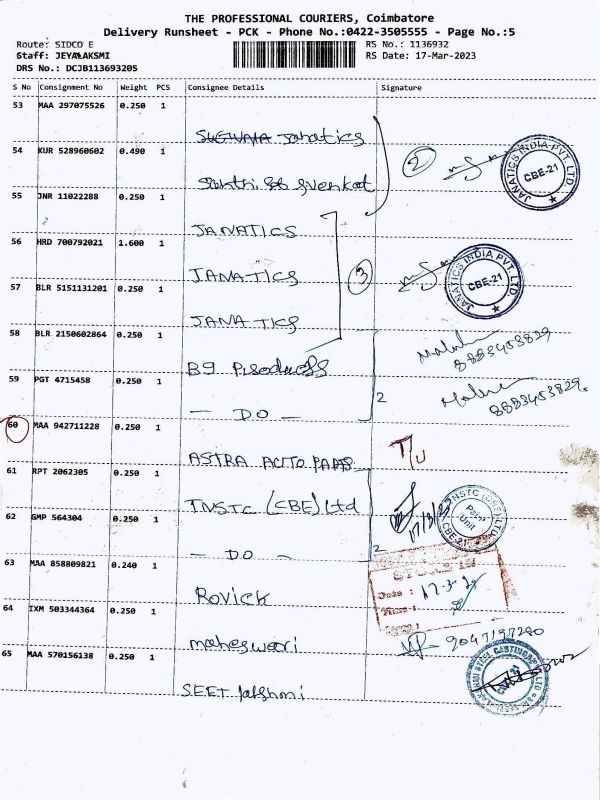 THE PROFESSIONAL COURIERS, Coimbatore
Delivery Runsheet - PCK - Phone No.:0422-3505555 - Page No.:5
Route: SIDCO E RS No.: 1136932
Staff: JEYALAKSMI RS Date: 17-Mar-2023
DRS No.: DCJB113693205
S No Consignment No Weight PCS Consignee Details Signature
53 MAA 297075526 0.250 1
Janatics
54 KUR 528960602 0.490 1
2
JANATICS INDIA PVT. LTD. CBE-21
Sakthi
55 JNR 11022288 0.250 1
JANATICS
56 HRD 700792021 1.600 1
JANATICS
3
JANATICS INDIA PVT. LTD. CBE-21
57 BLR 5151131201 0.250 1
JANATICS
58 BLR 2150602864 0.250 1
B9 Products
8883453829
59 PGT 4715458 0.250 1
- DO -
2
8883453829.
60 MAA 942711228 0.250 1
ASTRA AUTO PARTS
T/U
61 RPT 2062305 0.250 1
TNSTC (CBE) Ltd
TNSTC (CBE) LTD CBE-21
62 GMP 564304 0.250 1
- DO -
2
63 MAA 858809821 0.240 1
Rovick
Date : 17-3-
Time :
64 IXM 503344364 0.250 1
maheswari
65 MAA 570156138 0.250 1
STEEL CASTINGS